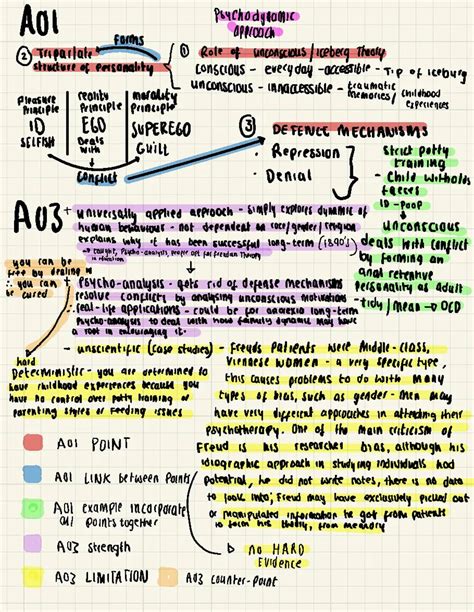 AO1
Psychodynamic
approach
Forms
② Tripartate
structure of personality
① Role of unconscious/iceberg theory
conscious - everyday - accessible - Tip of iceburg
unconscious - innaccessible - traumatic
memories/childhood
experiences
Pleasure
Principle
ID
SELFISH
reality
Principle
EGO
Deals
with
morality
principle
SUPEREGO
Guilt
conflict
③ DEFENCE MECHANISMS
• Repression
• Denial
strict potty
training
- Child witholds
faeces
ID - poop
unconscious
deals with conflict
by forming an
anal retentive
personality as adult
- tidy/mean → OCD
AO3
+ universally applied approach - simply explores dynamic of
human behaviour - not dependent on race/gender/religion
explains why it has been successful long-term (1890's)
+ Psycho-analysis - gets rid of defense mechanisms
resolve conflict by analysing unconscious motivations
real-life applications - could be for anorexia long-term
Psycho-analysis to deal with how family dynamic may have
a root in encouraging it.
you can be
free by dealing
∴ you can
be cured
- unscientific (case studies) - Freuds patients were middle-class,
Viennese women - a very specific type,
this causes problems to do with many
types of bias, such as gender - men may
have very different approaches in attending their
psychotherapy. One of the main criticism of
Freud is his researcher bias, although his
idiographic approach in studying individuals had
potential, he did not write notes, there is no data
to look into; Freud may have exclusively picked out
or manipulated information he got from patients
to form his theory, from memory
↳ no HARD
Evidence
hard
Deterministic - you are determined to
have childhood experiences because you
have no control over potty training or
parenting styles or feeding issues
AO1 POINT
AO1 LINK between points
AO1 example incorporate
AO1 points together
AO3 strength
AO3 LIMITATION
AO3 counter-point